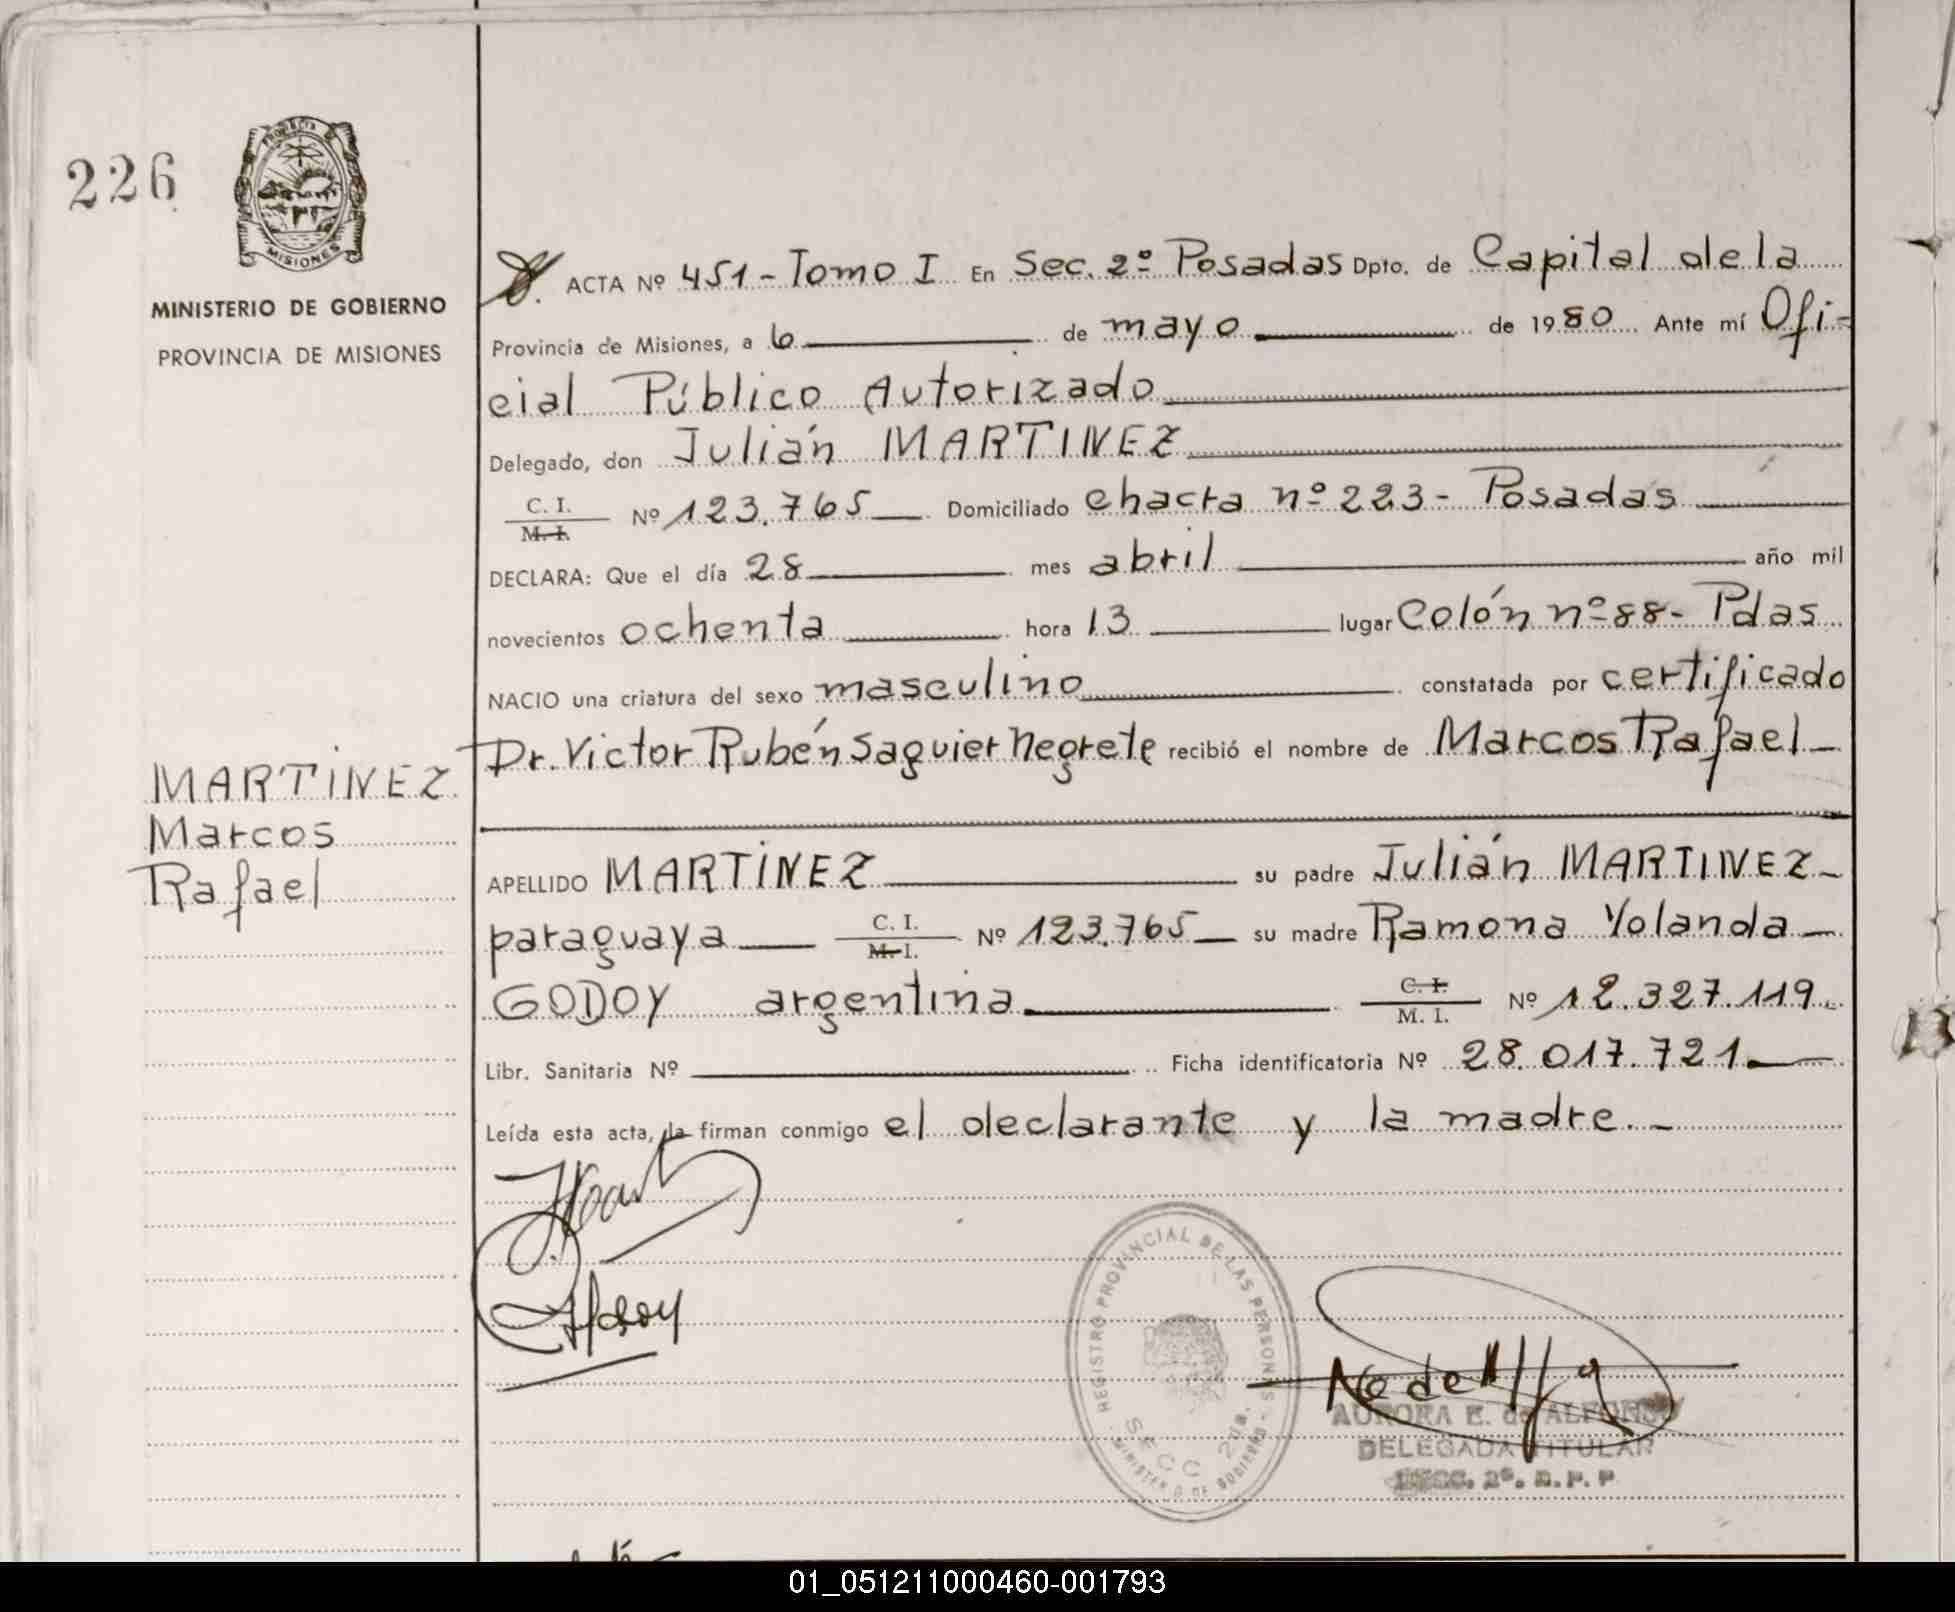 226
PROVINCIA
MISIONES
MINISTERIO DE GOBIERNO
PROVINCIA DE MISIONES
ACTA Nº 451 - Tomo I En Sec. 2º Posadas Dpto. de Capital de la
Provincia de Misiones, a 6 de mayo de 1980 Ante mí Ofi-
cial Público Autorizado
Delegado, don Julián MARTINEZ
C. I.
M. I. Nº 123.765 Domiciliado chacra nº 223 - Posadas
DECLARA: Que el día 28 mes abril año mil
novecientos ochenta hora 13 lugar Colón nº 88 - Pdas
NACIO una criatura del sexo masculino constatada por certificado
Dr. Victor Rubén Saguier Negrete recibió el nombre de Marcos Rafael
MARTINEZ
Marcos
Rafael
APELLIDO MARTINEZ su padre Julián MARTINEZ
paraguaya C. I.
M. I. Nº 123.765 su madre Ramona Yolanda
GODOY argentina C. I.
M. I. Nº 12.327.119
Libr. Sanitaria Nº Ficha identificatoria Nº 28.017.721
Leída esta acta, la firman conmigo el declarante y la madre.
REGISTRO PROVINCIAL DE LAS PERSONAS
SECC 2da.
MINISTERIO DE GOBIERNO
AURORA E. de ALFONSO
DELEGADA TITULAR
SECC. 2º. R. P. P.
01_051211000460-001793